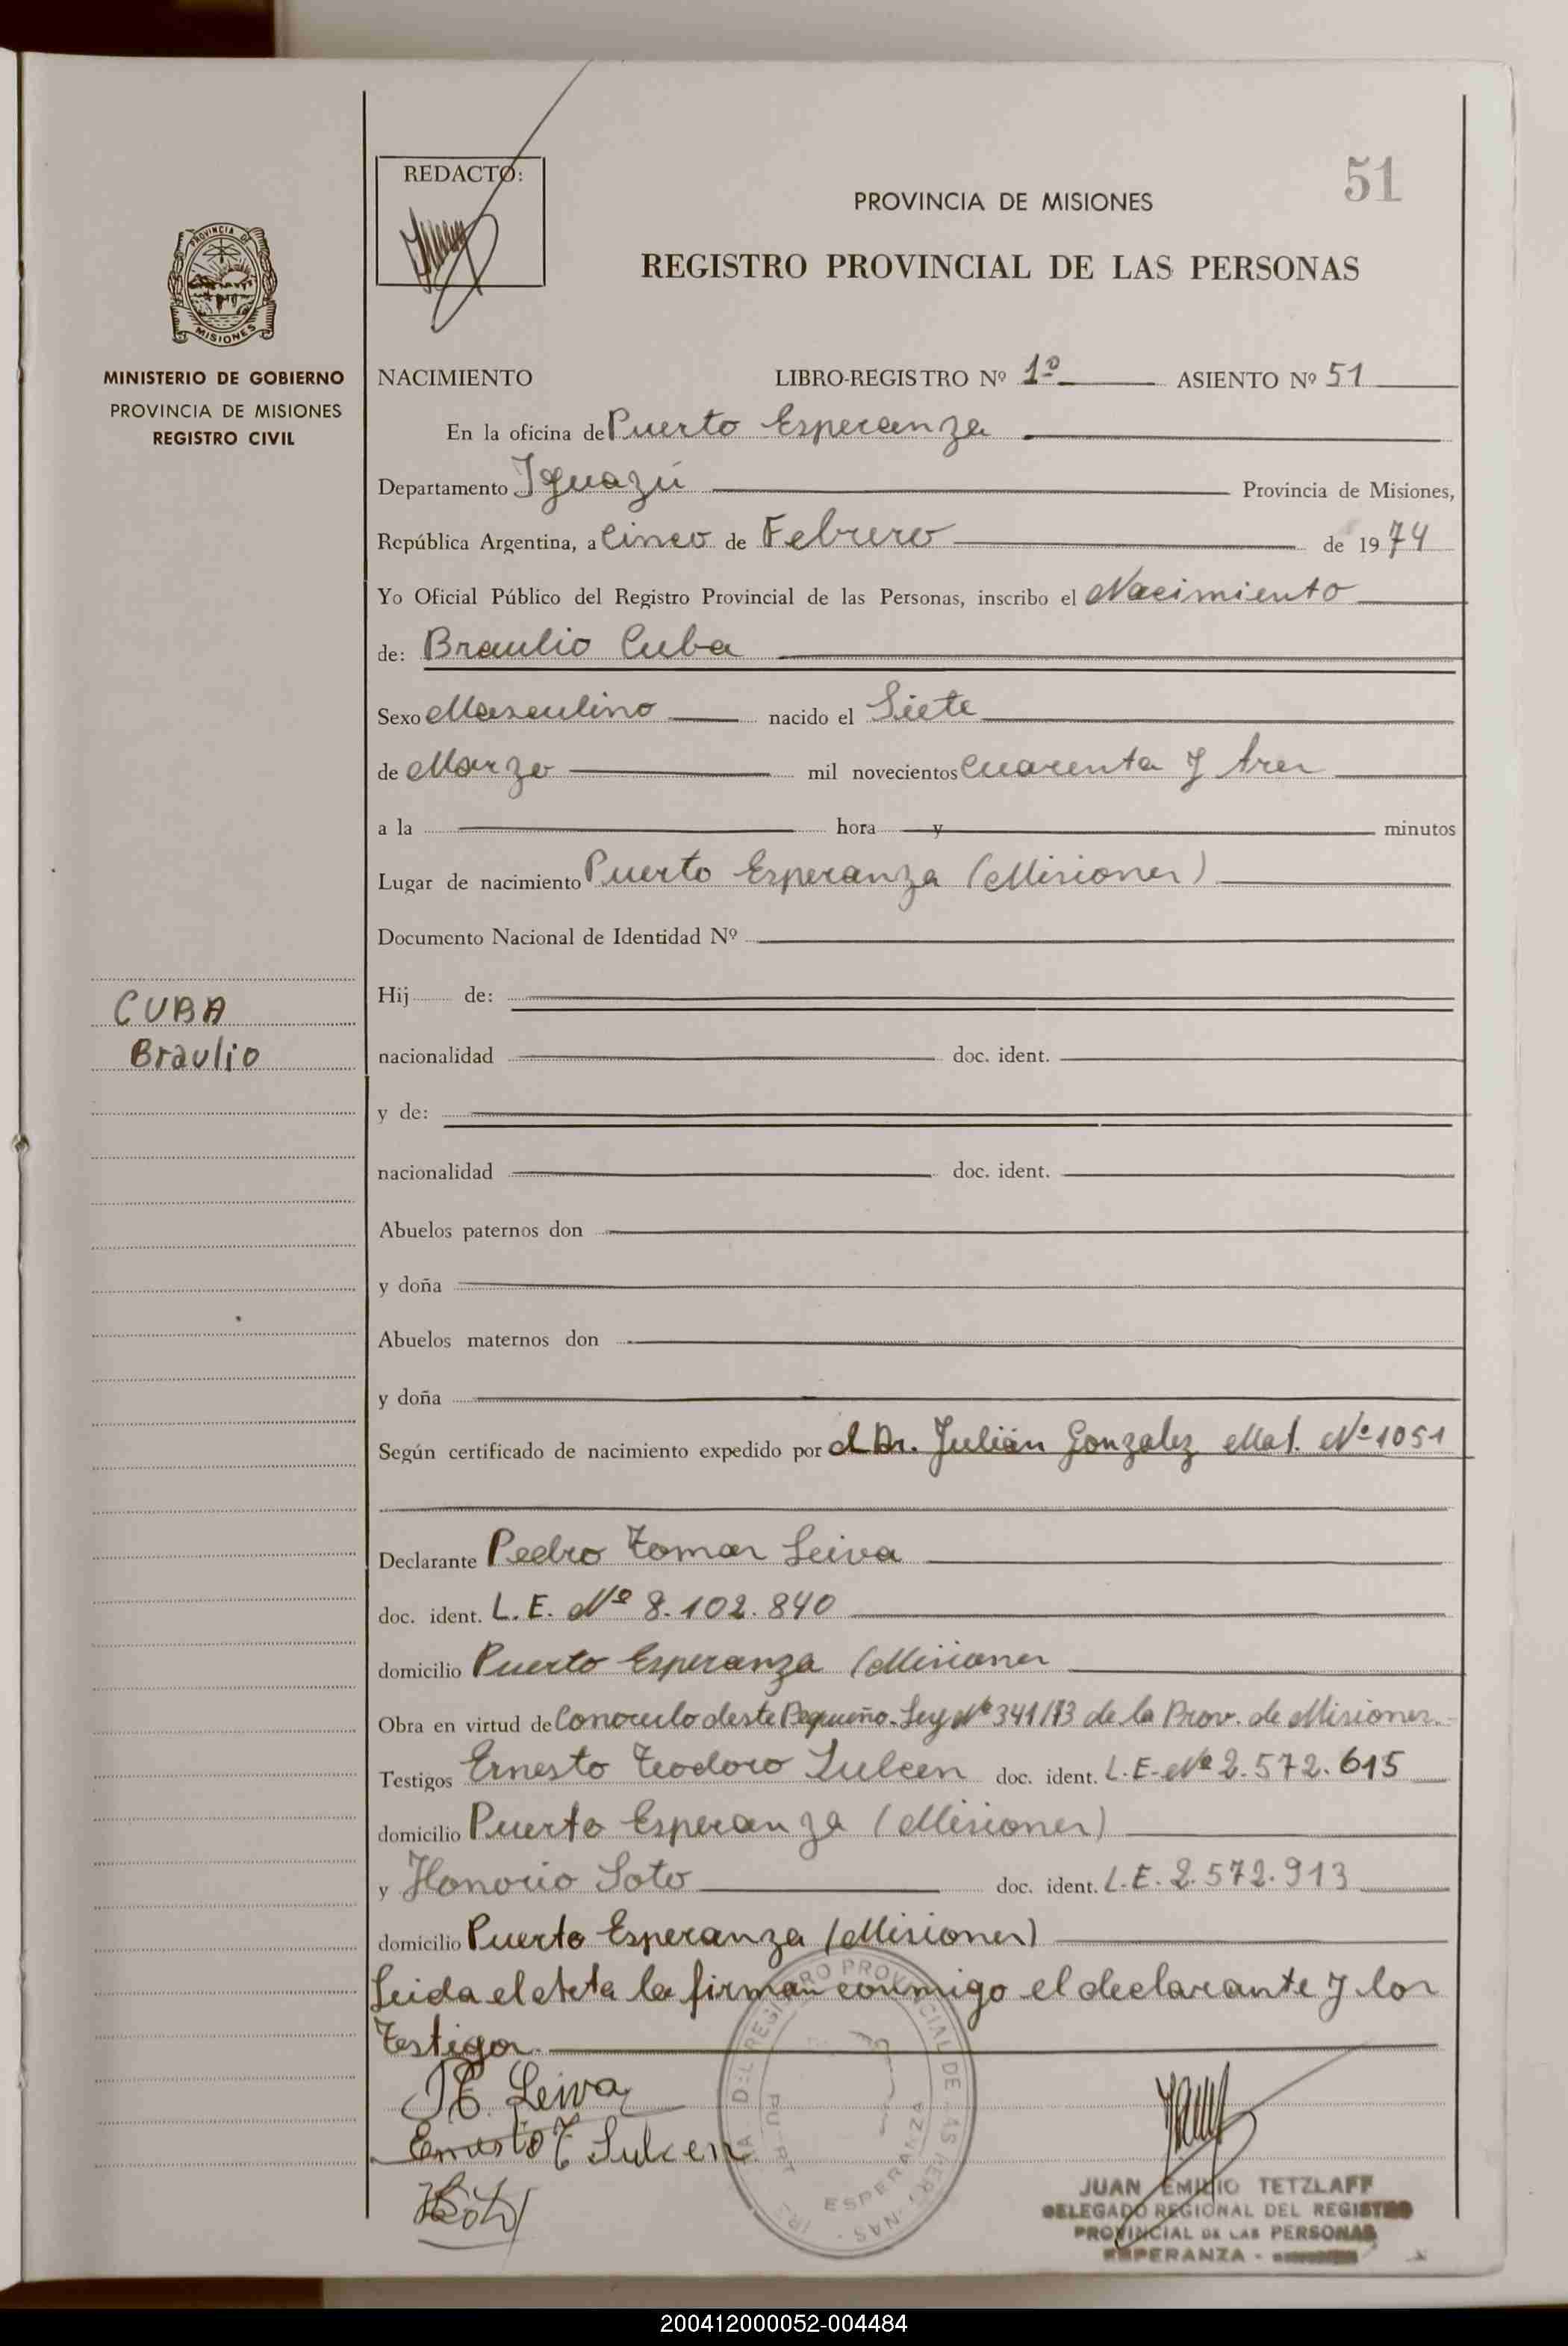 REDACTO:
51
PROVINCIA DE MISIONES
REGISTRO PROVINCIAL DE LAS PERSONAS
PROVINCIA DE
MISIONES
MINISTERIO DE GOBIERNO
PROVINCIA DE MISIONES
REGISTRO CIVIL
NACIMIENTO LIBRO-REGISTRO Nº 1º ASIENTO Nº 51
En la oficina de Puerto Esperanza
Departamento Iguazú Provincia de Misiones,
República Argentina, a Cinco de Febrero de 1974
Yo Oficial Público del Registro Provincial de las Personas, inscribo el Nacimiento
de: Braulio Cuba
Sexo Masculino nacido el Siete
de Marzo mil novecientos Cuarenta y tres
a la hora y minutos
Lugar de nacimiento Puerto Esperanza (Misiones)
Documento Nacional de Identidad Nº
Hij de:
CUBA
Braulio
nacionalidad doc. ident.
y de:
nacionalidad doc. ident.
Abuelos paternos don
y doña
Abuelos maternos don
y doña
Según certificado de nacimiento expedido por el Dr. Julián Gonzalez Mat. Nº 1051
Declarante Pedro Tomas Leiva
doc. ident. L.E. Nº 8.102.840
domicilio Puerto Esperanza (Misiones
Obra en virtud de Ley Nº 341/73 de la Prov. de Misiones.
Testigos Ernesto Teodoro Sulcen doc. ident. L.E. Nº 2.572.615
domicilio Puerto Esperanza (Misiones)
y Honorio Soto doc. ident. L.E. 2.572.913
domicilio Puerto Esperanza (Misiones)
Leida el Acta la firman conmigo el declarante y los
Testigos.
Leiva
Ernesto T Sulcen
JUAN EMILIO TETZLAFF
DELEGADO REGIONAL DEL REGISTRO
PROVINCIAL DE LAS PERSONAS
ESPERANZA -
200412000052-004484